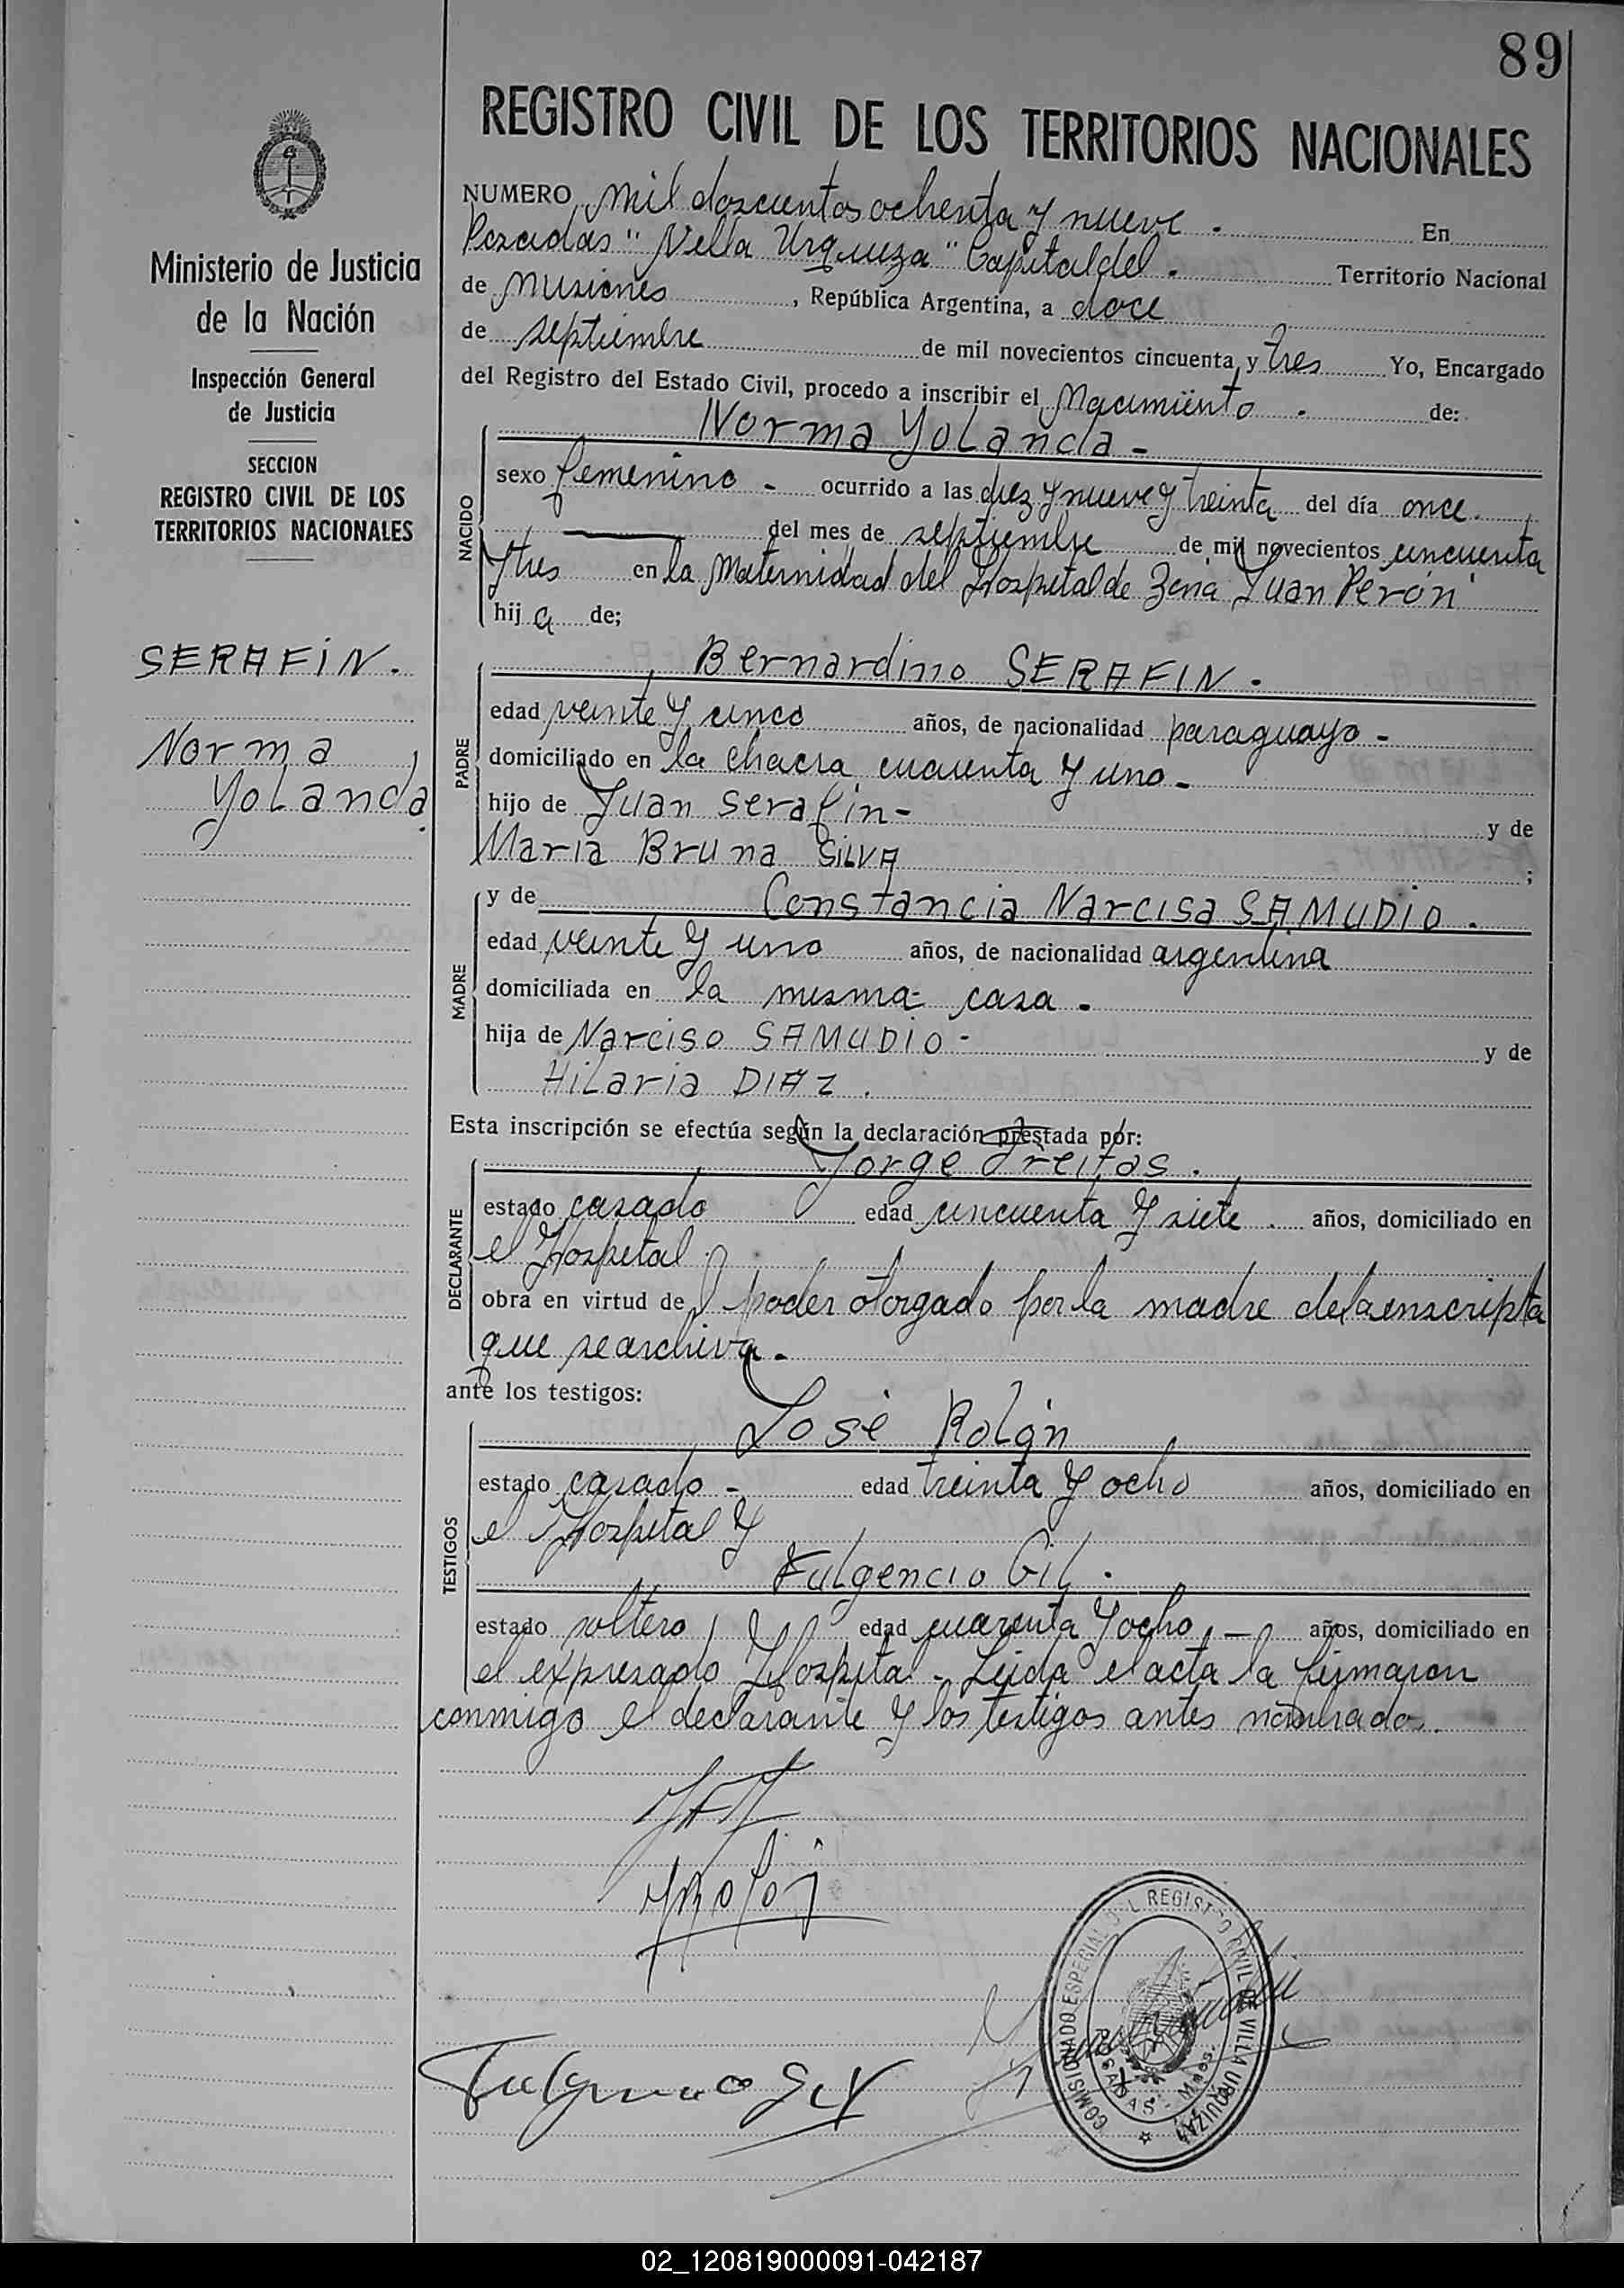 89
REGISTRO CIVIL DE LOS TERRITORIOS NACIONALES
Ministerio de Justicia
de la Nación
Inspección General
de Justicia
SECCION
REGISTRO CIVIL DE LOS
TERRITORIOS NACIONALES
SERAFIN.
Norma
Yolanda
NUMERO mil doscientos ochenta y nueve. En
Posadas "Villa Urquiza" Capital del. Territorio Nacional
de Misiones, República Argentina, a doce
de septiembre de mil novecientos cincuenta y tres Yo, Encargado
del Registro del Estado Civil, procedo a inscribir el Nacimiento. de:
Norma Yolanda -
NACIDO
sexo femenino - ocurrido a las diez y nueve y treinta del día once.
del mes de septiembre de mil novecientos cincuenta
y tres en la Maternidad del Hospital de Zona Juan Perón"
hija de;
Bernardino SERAFIN.
PADRE
edad veinte y cinco años, de nacionalidad paraguayo -
domiciliado en la chacra cuarenta y uno -
hijo de Juan Serafin - y de
Maria Bruna SILVA ;
y de Constancia Narcisa SAMUDIO.
MADRE
edad veinte y uno años, de nacionalidad argentina
domiciliada en la misma casa.
hija de Narciso SAMUDIO - y de
Hilaria DIAZ.
Esta inscripción se efectúa según la declaración prestada por:
Jorge Freitas.
DECLARANTE
estado casado edad cincuenta y siete. años, domiciliado en
el Hospital.
obra en virtud del poder otorgado por la madre de la inscripta
que se archiva.
ante los testigos:
José Rolón
TESTIGOS
estado casado - edad treinta y ocho años, domiciliado en
el Hospital y
Fulgencio Gil.
estado soltero, edad cuarenta y ocho, - años, domiciliado en
el expresado Hospital - Leida el acta la firmaron
conmigo el declarante y los testigos antes nombrados.
JRolón
Fulgencio Gil
COMISIONADO ESPECIAL DEL REGISTRO CIVIL DE VILLA URQUIZA
POSADAS - Mnes.
02_120819000091-042187